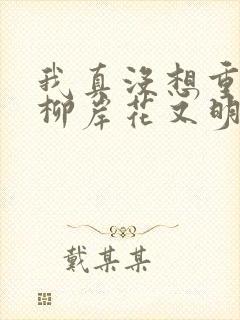 我真没想重
柳岸花又明
戴某某